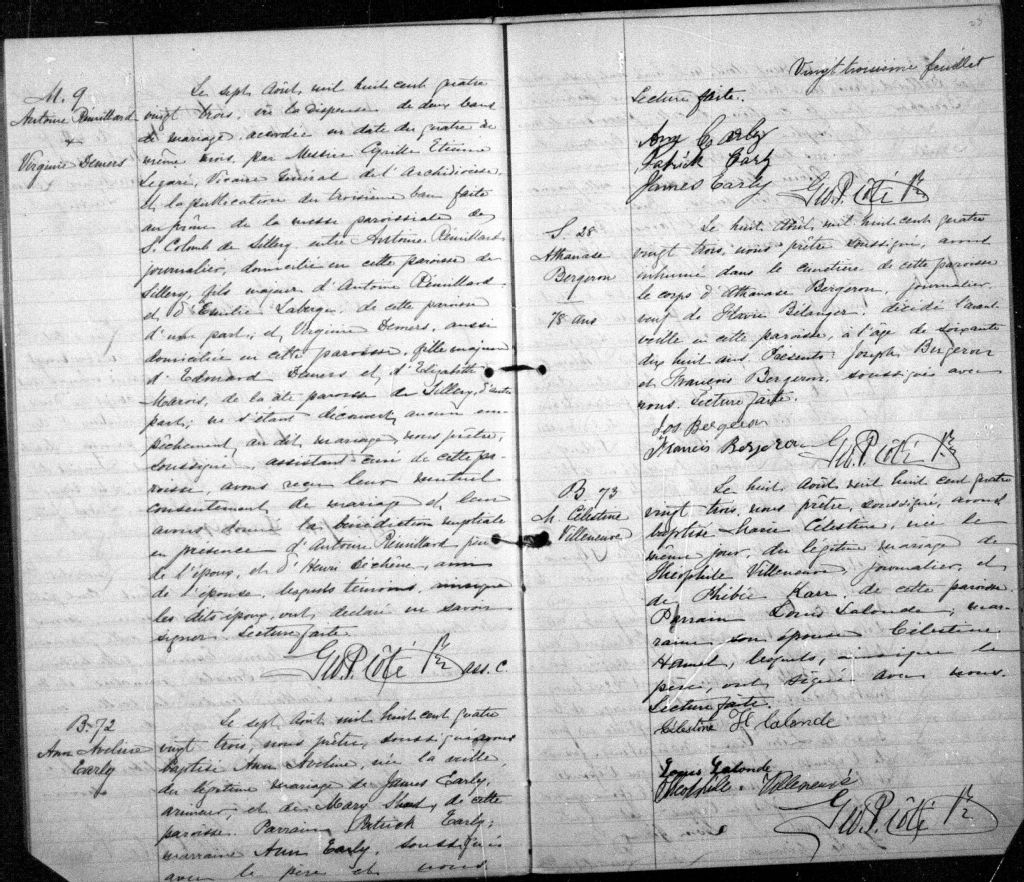 M. 9
Antoine Réuillard
+
Virginie Demers
Le sept Août, mil huit cent quatre
vingt trois, vu la dispense de deux bans
de mariage, accordée en date du quatre de
même mois, par Messire Cyrille Etienne
Legaré, Vicaire Général de l'Archidiocèse
et la publication du troisième ban faite
au prône de la messe paroissiale de
St Colomb de Sillery, entre Antoine Réuillard
journalier, domicilié en cette paroisse de
Sillery, fils majeur d'Antoine Réuillard
et d'Emilie Laberge, de cette paroisse
d'une part; et Virginie Demers, aussi
domiciliée en cette paroisse, fille majeure
d'Edouard Demers et d'Elizabeth
Marois, de la dte paroisse de Sillery, d'autre
part; ne s'étant découvert aucun em-
pêchement au dit mariage, nous prêtre,
soussigné, assistant-curé de cette pa-
roisse, avons reçu leur mutuel
consentement de mariage et leur
avons donné la bénédiction nuptiale
en présence d'Antoine Réuillard, père
de l'époux, et d'Henri Déchène, ami
de l'épouse, lesquels témoins, ainsi que
les dits époux, ont déclaré ne savoir
signer. Lecture faite.
Geo. P. Côté Ptr ass. C
B. 72
Ann Aveline
Early
Le sept Août, mil huit cent quatre
vingt trois, nous prêtre, soussigné avons
baptisé Ann Aveline, née la veille,
du légitime mariage de James Early,
arrimeur, et de Mary Shea, de cette
paroisse. Parrain, Patrick Early;
marraine Ann Early, soussignés
avec le père et nous.
23
Vingt troisième feuillet
Lecture faite.
Ann Early
Patrick Early
James Early
Geo. P. Côté Ptr
S. 28
Athanase
Bergeron
78 ans
Le huit Août, mil huit cent quatre
vingt trois, nous prêtre soussigné, avons
inhumé dans le cimetière de cette paroisse
le corps d'Athanase Bergeron, journalier,
veuf de Flavie Bélanger, décédé l'avant
veille en cette paroisse, à l'âge de soixante
dix huit ans. Présents: Joseph Bergeron
et François Bergeron, soussignés avec
nous. Lecture faite.
Jos Bergeron
Francis Bergeron
Geo. P. Côté Ptr
B 73
M. Célestine
Villeneuve
Le huit Août mil huit cent quatre
vingt trois, nous prêtre, soussigné, avons
baptisé Marie Célestine, née le
même jour, du légitime mariage de
Théophile Villeneuve, journalier, et
de Phibie Karr, de cette paroisse.
Parrain Louis Lalonde; mar-
raine son épouse Célestine
Hamel, lesquels, ainsi que le
père, ont signé avec nous.
Lecture faite.
Célestine H Lalonde
Louis Lalonde
Theophile Villeneuve
Geo. P. Côté Ptr